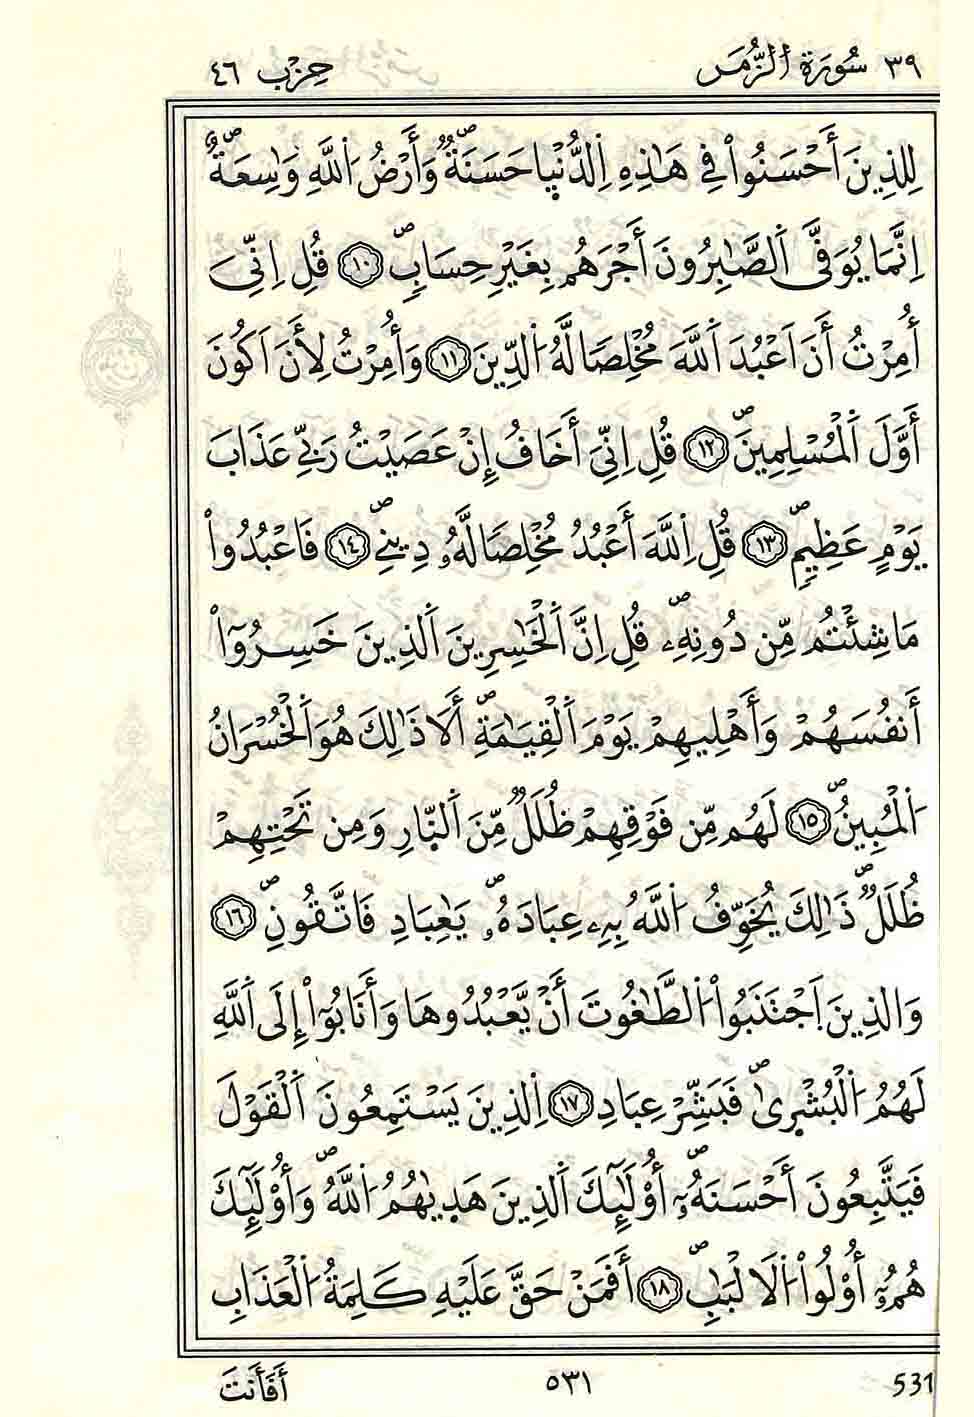 ٣٩ سُورَةُ الزُّمَرِ حِزْب ٤٦
لِلذِينَ أَحْسَنُواْ فِي هَٰذِهِ اِلدُّنْيَا حَسَنَةٞ وَأَرْضُ اَللَّهِ وَٰسِعَةٌۖ
اِنَّمَا يُوَفَّى اَلصَّٰبِرُونَ أَجْرَهُم بِغَيْرِ حِسَابٖۖ ١٠ قُلِ اِنِّيَ
أُمِرْتُ أَنَ اَعْبُدَ اَللَّهَ مُخْلِصاٗ لَّهُ اُلدِّينَ ١١ وَأُمِرْتُ لِأَنَ اَكُونَ
أَوَّلَ اَلْمُسْلِمِينَۖ ١٢ قُلِ اِنِّيَ أَخَافُ إِنْ عَصَيْتُ رَبِّي عَذَابَ
يَوْمٍ عَظِيمٖۖ ١٣ قُلِ اِللَّهَ أَعْبُدُ مُخْلِصاٗ لَّهُۥ دِينِيۖ ١٤ فَاعْبُدُواْ
مَا شِئْتُم مِّن دُونِهِۦۖ قُلِ اِنَّ اَلْخَٰسِرِينَ اَلذِينَ خَسِرُوٓاْ
أَنفُسَهُمْ وَأَهْلِيهِمْ يَوْمَ اَلْقِيَٰمَةِۖ أَلَا ذَٰلِكَ هُوَ اَلْخُسْرَانُ
اُلْمُبِينُۖ ١٥ لَهُم مِّن فَوْقِهِمْ ظُلَلٞ مِّنَ اَلنّ۪ارِ وَمِن تَحْتِهِمْ
ظُلَلٞۖ ذَٰلِكَ يُخَوِّفُ اُللَّهُ بِهِۦ عِبَادَهُۥۖ يَٰعِبَادِ فَاتَّقُونِۖ ١٦
وَالذِينَ اَجْتَنَبُواْ اُلطَّٰغُوتَ أَنْ يَّعْبُدُوهَا وَأَنَابُوٓاْ إِلَى اَللَّهِ
لَهُمُ اُلْبُشْر۪يٰۖ فَبَشِّرْ عِبَادِ ١٧ اِلذِينَ يَسْتَمِعُونَ اَلْقَوْلَ
فَيَتَّبِعُونَ أَحْسَنَهُۥٓۖ أُوْلَٰٓئِكَ اَلذِينَ هَد۪يٰهُمُ اُللَّهُۖ وَأُوْلَٰٓئِكَ
هُمُۥٓ أُوْلُواْ اُلَالْبَٰبِۖ ١٨ أَفَمَنْ حَقَّ عَلَيْهِ كَلِمَةُ اُلْعَذَابِ
أَفَأَنتَ ٥٣١ 531